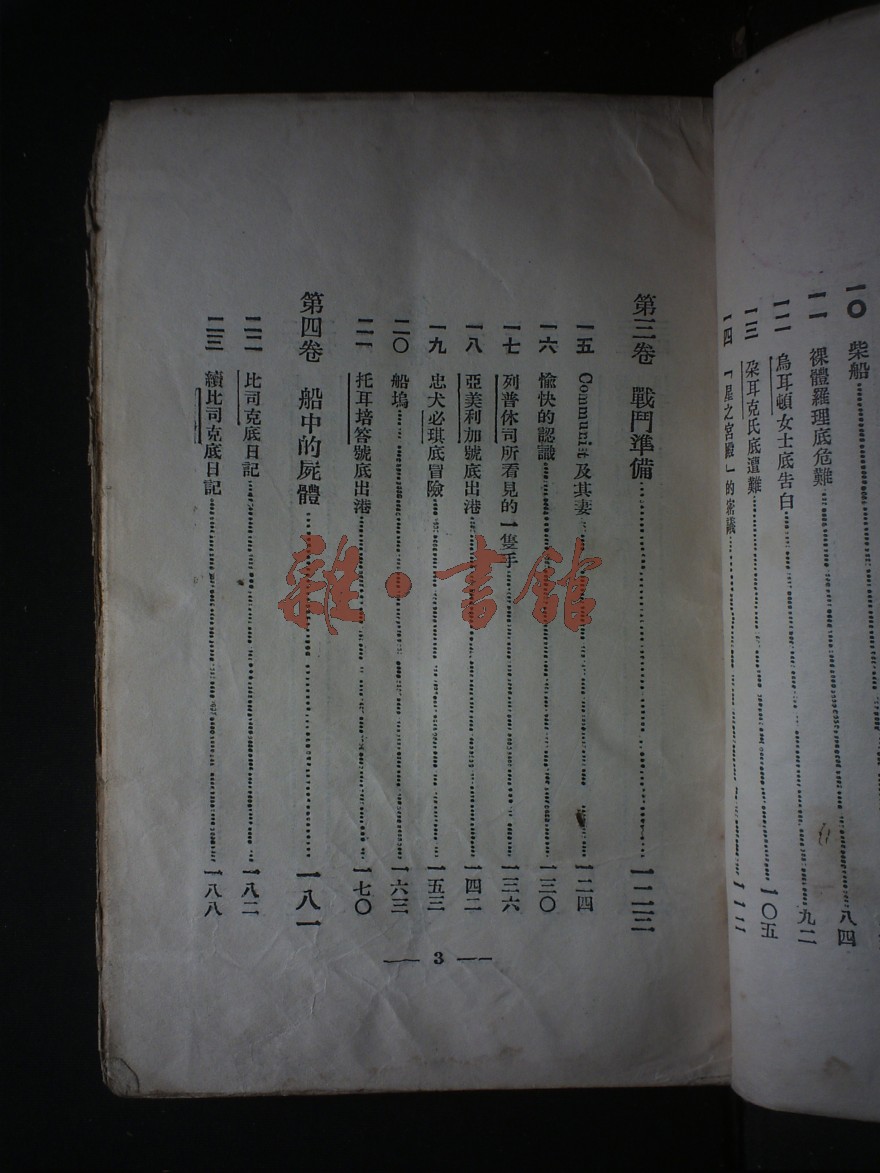 一〇 柴船……八四
一一 裸體羅理底危難……九二
一二 烏耳頓女士底告白……一〇五
一三 朶耳克氏底遭難
一四 「星之宮殿」的密議……一一二
第三卷 戰鬥準備……一二三
一五 Communist及其妻……一二四
一六 愉快的認識……一三〇
一七 列普休司所看見的一隻手……一三六
一八 亞美利加號底出港……一四二
一九 忠犬必琪底冒險……一五三
二〇 船塢……一六三
二一 托耳培答號底出港……一七〇
第四卷 船中的屍體……一八一
二二 比司克底日記……一八二
二三 續比司克底日記……一八八
3
雜·書館